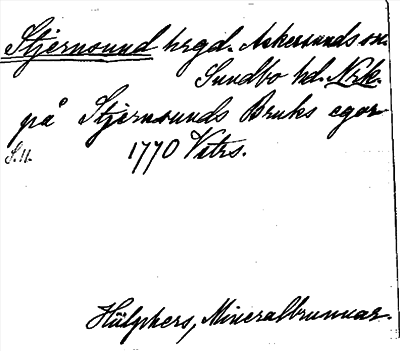 Stjernsund hrgd. Askersunds sn.
Sundbo hd. Nrk.
på Stjernsunds Bruks egor
S. 11. 1770 Vttrs.
Hülphers, Mineralbrunnar.